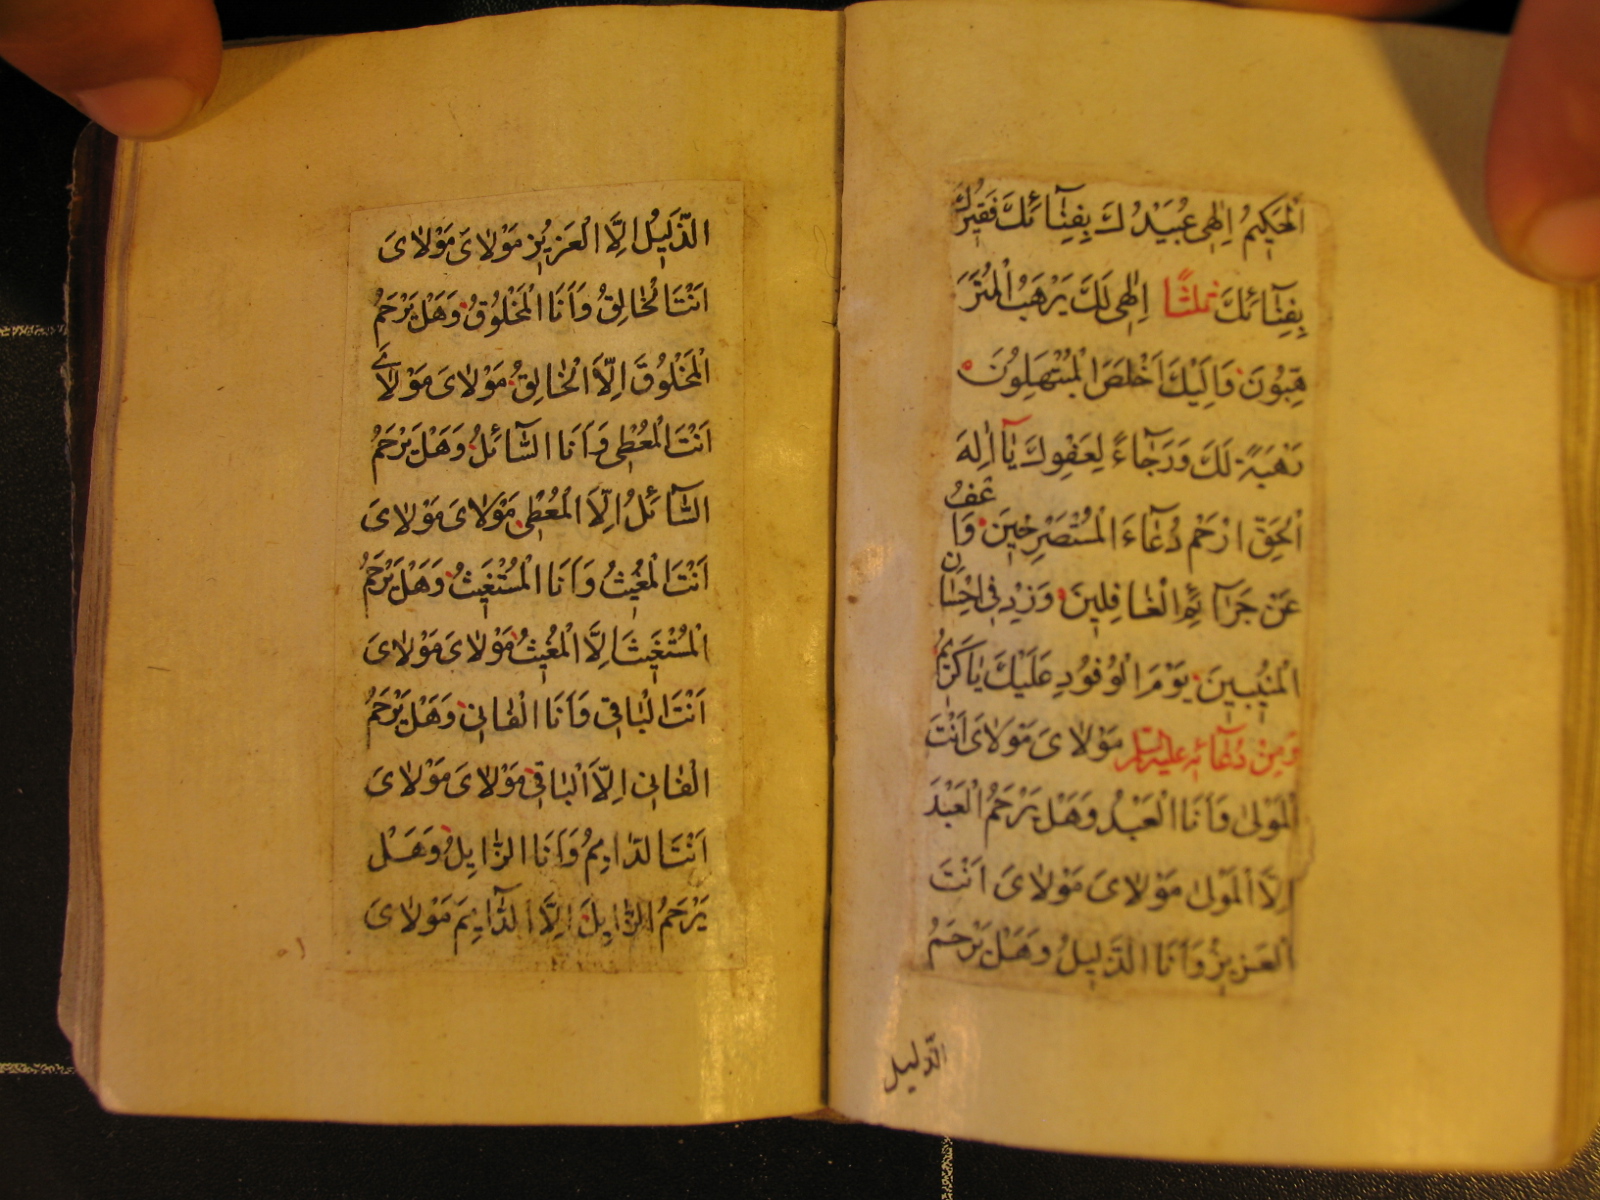 الْحَكِيمُ اِلٰهِى عُبَيْدُكَ بِفِنَٓائِكَ فَقِيرُكَ
بِفِنَٓائِكَ ثلثًا اِلٰهِى لَكَ يَرْهَبُ الْمُتَرَ
هِّبُونَ وَاِلَيْكَ اَخْلَصَ الْمُبْتَهِلُونَ
رَهْبَةً لَكَ وَرَجَٓاءً لِعَفْوِكَ يَٓا اِلٰهَ
الْحَقِّ ارْحَمْ دُعَٓاءَ الْمُسْتَصْرِخِينَ وَاعْفُ
عَنْ جَرَٓائِمِ الْغَافِلِينَ وَزِدْ فِى اِحْسَانِ
الْمُنِيبِينَ يَوْمَ الْوُفُودِ عَلَيْكَ يَا كَرِيمُ
وَمِنْ دُعَٓائِهِ عليه السلام مَوْلَاىَ مَوْلَاىَ اَنْتَ
الْمَوْلٰى وَاَنَا الْعَبْدُ وَهَلْ يَرْحَمُ الْعَبْدَ
اِلَّا الْمَوْلٰى مَوْلَاىَ مَوْلَاىَ اَنْتَ
الْعَزِيزُ وَاَنَا الذَّلِيلُ وَهَلْ يَرْحَمُ
الذّليل
الذَّلِيلَ اِلَّا الْعَزِيزُ مَوْلَاىَ مَوْلَاىَ
اَنْتَ الْخَالِقُ وَاَنَا الْمَخْلُوقُ وَهَلْ يَرْحَمُ
الْمَخْلُوقَ اِلَّا الْخَالِقُ مَوْلَاىَ مَوْلَاىَ
اَنْتَ الْمُعْطِى وَاَنَا السَّٓائِلُ وَهَلْ يَرْحَمُ
السَّٓائِلَ اِلَّا الْمُعْطِى مَوْلَاىَ مَوْلَاىَ
اَنْتَ الْمُغِيثُ وَاَنَا الْمُسْتَغِيثُ وَهَلْ يَرْحَمُ
الْمُسْتَغِيثَ اِلَّا الْمُغِيثُ مَوْلَاىَ مَوْلَاىَ
اَنْتَ الْبَاقِى وَاَنَا الْفَانِى وَهَلْ يَرْحَمُ
الْفَانِى اِلَّا الْبَاقِى مَوْلَاىَ مَوْلَاىَ
اَنْتَ الدَّايِمُ وَاَنَا الزَّايِلُ وَهَلْ
يَرْحَمُ الزَّايِلَ اِلَّا الدَّٓايِمُ مَوْلَاىَ
٥١